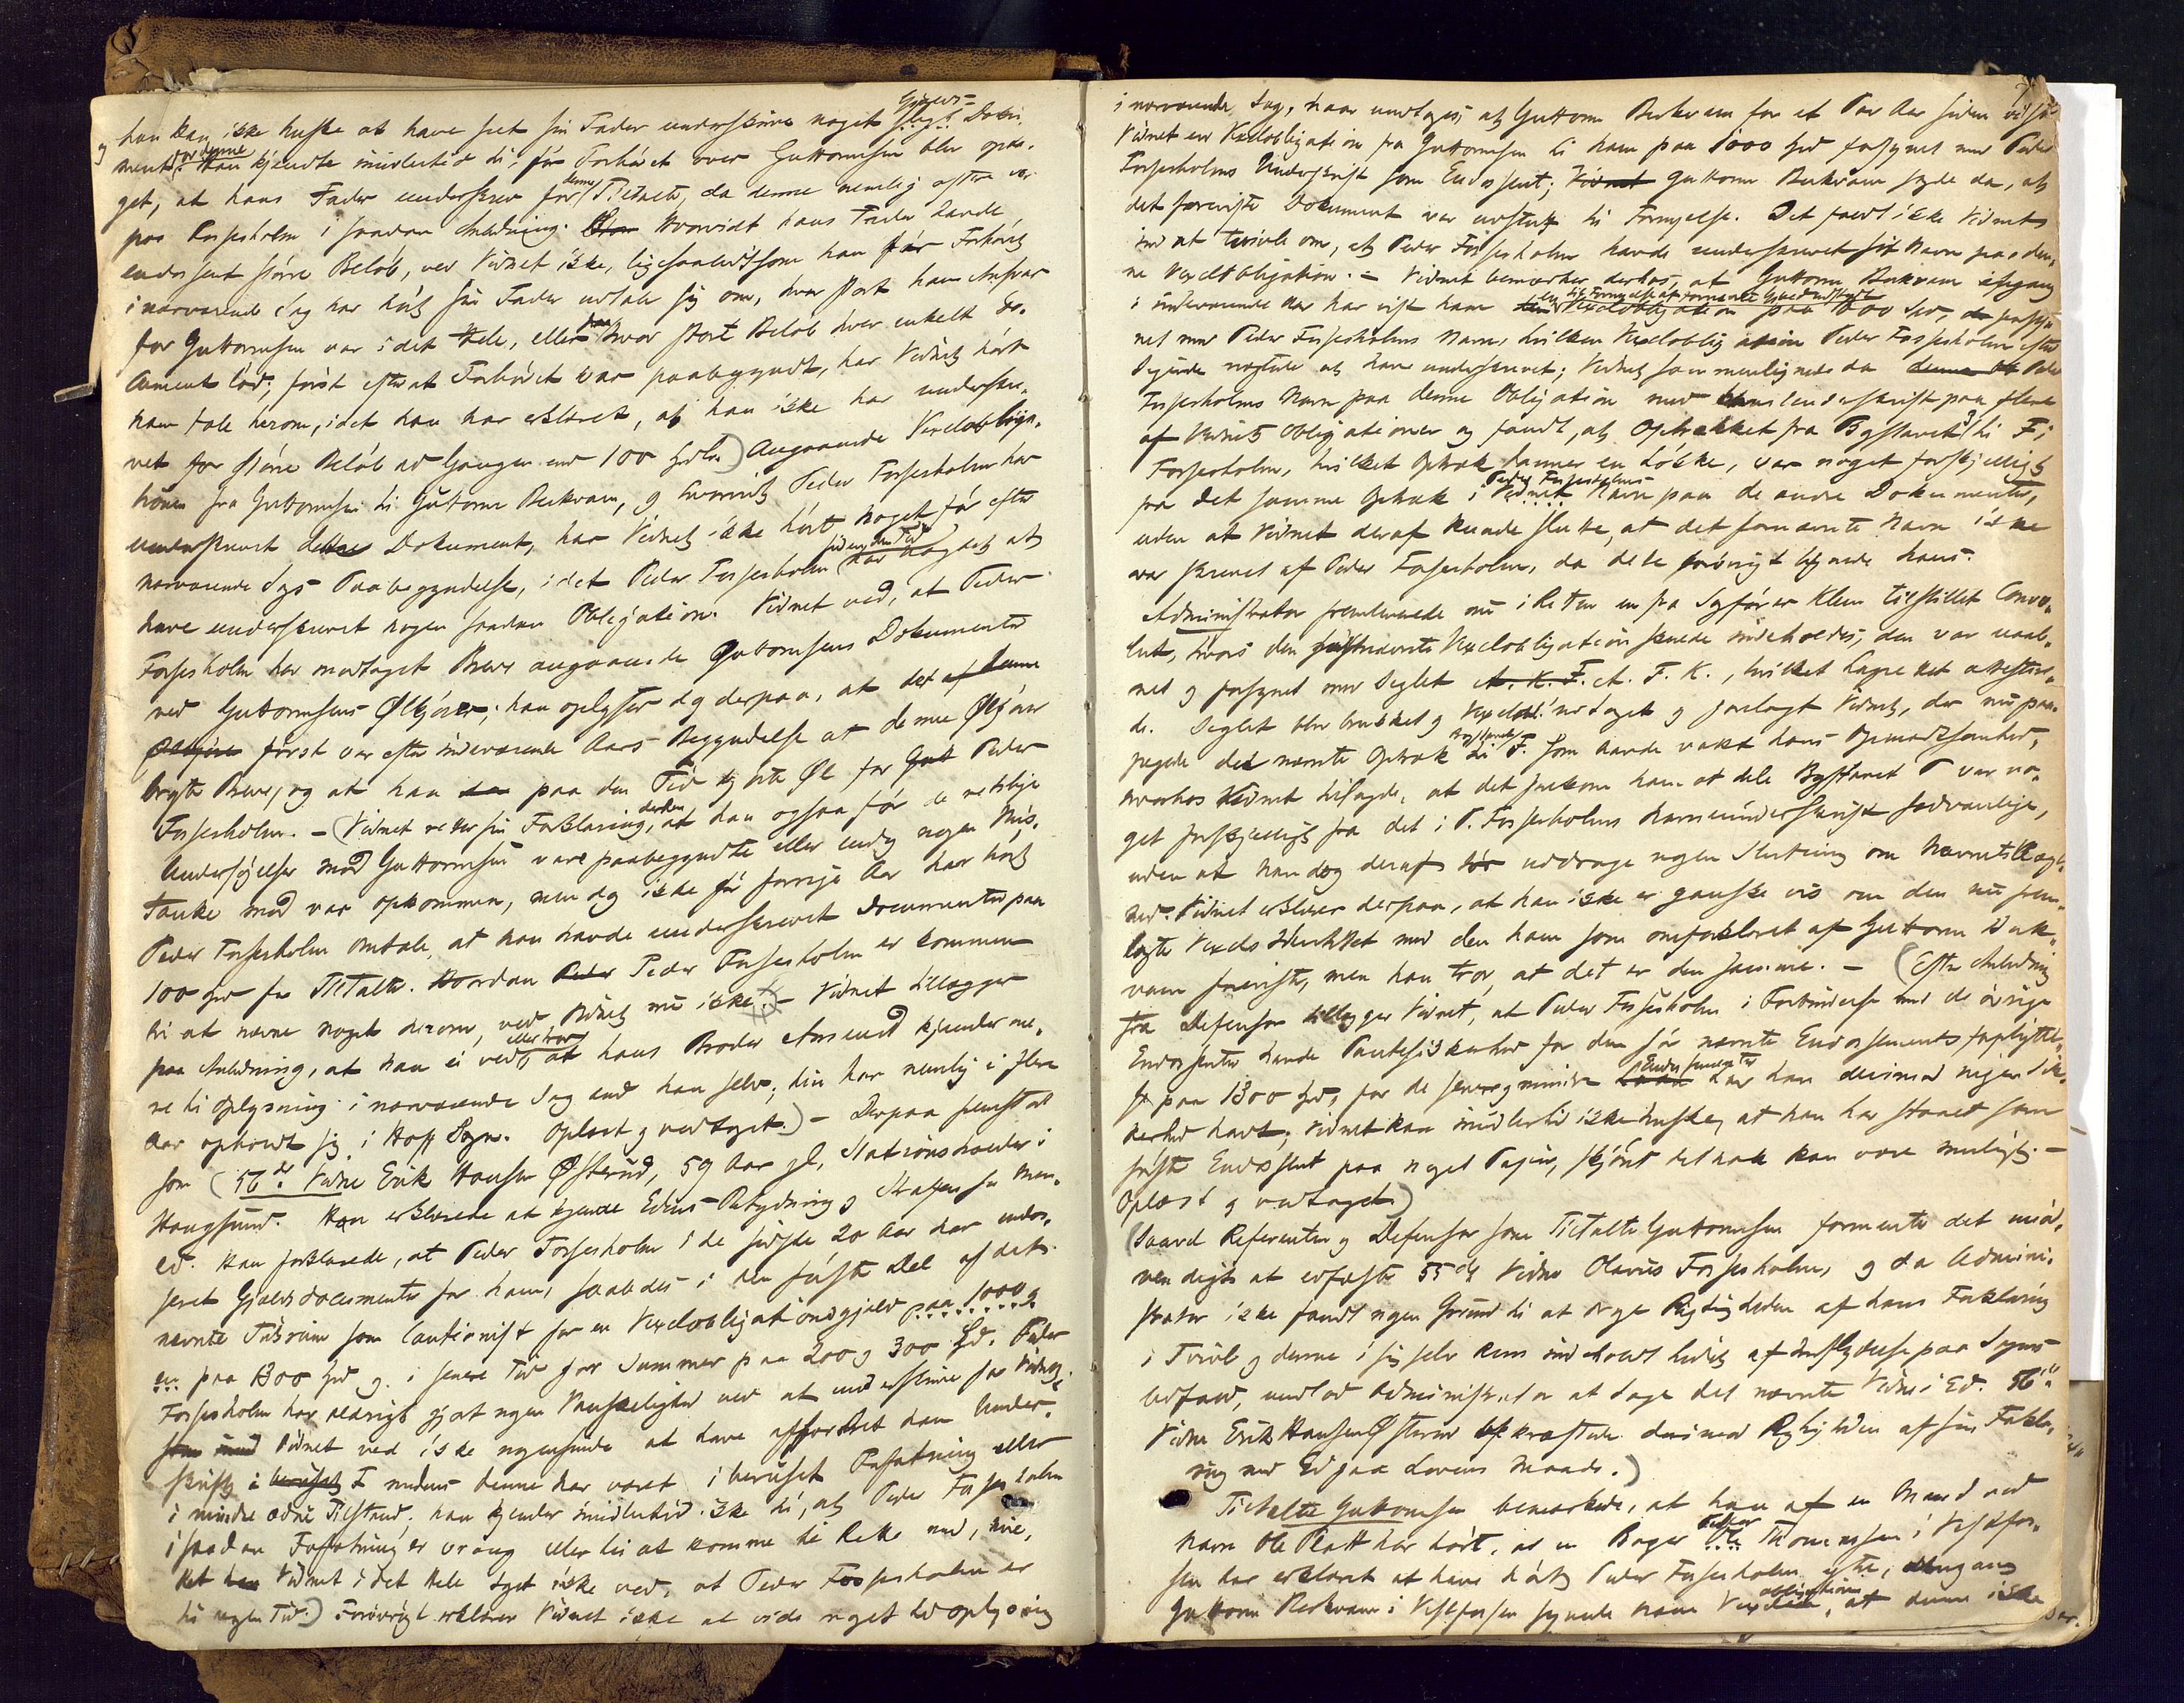 han kan ikke huske at have set sin Fader underskrive noget sligt Gjelds-
og ment for denne. Han kjendte imidlertid til, før Forhøret over Guttormsen blev opta-
get, at hans Fader underskrev for denne Tiltalte, da denne nemlig oftere var
paa Fossesholm i saadan Anledning. Hvorvidt hans Fader havde
endossert større Beløb, ved Vidnet ikke, ligesaalidt som han før Forhøret
i nærværende Sag har hørt sin Fader udtale sig om, hvor stort hans Ansvar
for Guttormsen var i det Hele, eller paa hvor stort Beløb hver enkelt Do-
cument lød; først efterat Forhøret var paabegyndt, har Vidnet hørt
ham tale herom, idet han har erklæret, at han ikke har underskre-
vet for større Beløb ad Gangen end 100 Spd.) Angaaende Vexelobliga-
tionen fra Guttormsen til Guttorm Berkvam, og hvorvidt Peder Fossesholm har
underskrevet dette Dokument, har Vidnet ikke hørt noget før efter
nærværende Sags Paabegyndelse, idet Peder Fossesholm siden den Tid har nægtet at
have underskrevet nogen saadan Obligation. Vidnet ved, at Peder
Fossesholm har modtaget Breve angaaende Guttormsens Dokumenter
ved Guttormsens Ølkjører; han oplyser dog derpaa, at det af denne
Ølkjører først var efter indeværende Aars Begyndelse at denne Ølkjører
bragte Breve, og at han paa den Tid kjørte Øl for Peder
Fossesholm. – (Vidnet retter sin Forklaring derhen, at han ogsaa før de retslige
Undersøgelser mod Guttormsen vare paabegyndte eller endog nogen Mis-
tanke mod var opkommen, men dog ikke før forrige Aar har hørt
Peder Fossesholm omtale, at han havde underskrevet Documenter paa
100 Spd for Tiltalte. Hvordan Peder Fossesholm er kommen
til at nævne noget derom, ved Vidnet nu ikke.) – Vidnet tillægger
paa Anledning, at han ei ved eller tror, at hans Broder Amund kjender me-
re til Oplysning i nærværende Sag end han selv; hin har nemlig i flere
Aar opholdt sig i Hoff Sogn. Oplæst og vedtaget.) – Derpaa fremstod
som (56de Vidne Erik Hansen Østerud, 59 Aar gl., Stationsholder i
Haugsund. Han erklærede at kjende Edens Betydning og Straffen for Men-
ed. Han forklarede, at Peder Fossesholm i de sidste 20 Aar har endos-
seret Gjeldsdocumenter for ham, saaledes i den første Del af det
nævnte Tidsrum som Cautionist for en Vexelobligationsgjeld paa 1000 og
en paa 1300 Spd og i senere Tid for Summer paa 200 og 300 Spd. Peder
Fossesholm har aldrig gjort nogen Vanskelighed ved at underskrive for Vidnet.
Vidnet ved ikke nogensinde at have affordret ham Under-
skrift i F medens denne har været i beruset Forfatning eller
i mindre ædru Tilstand. han kjender imidlertid ikke til, at Peder Fossesholm
i saadan Forfatning er vrang eller lei at komme til Rette med, hvil-
ket Vidnet i det Hele taget ikke ved, at Peder Fossesholm er
til nogen Tid.) Forøvrigt erklærer Vidnet ikke at vide noget til Oplysning
i nærværende Sag, naar undtages, at Guttorm Berkvam for et Par Aar siden viste
Vidnet en Vexelobligation fra Guttormsen til ham paa 1000 Spd forsynet med Peder
Fossesholms Underskrift som Endossent; Guttorm Berkvam sagde da, at
det foreviste Dokument var udstedt til Fornyelse. Det faldt ikke Vidnet
ind at tvivle om, at Peder Fossesholm havde underskrevet sit Navn paa den-
ne Vexelobligation. – Vidnet bemærker derhos, at Guttorm Berkvam engang
i indeværende Aar har vist ham en til Fornyelse af fornævnte Gjæld udstedt Vexelobligation paa 1000 Spd, forsy-
net med Peder Fossesholms Navn, hvilken Vexelobligation Peder Fossesholm efter
Sigende nægtede at have underskrevet; Vidnet sammenlignede da Peder
Fossesholms Navn paa denne Obligation med hans Underskrift paa flere
af Vidnets Obligationer og fandt, at Optrækket fra Bogstavet P til F i
Fossesholm, hvilket Optræk danner en Løkke, var noget forskjelligt
fra det samme Optræk i Peder Fossesholms Navn paa de andre Dokumenter,
uden at Vidnet deraf kunde slutte, at det fornævnte Navn ikke
var skrevet af Peder Fossesholm, da dette forøvrigt lignede hans.
Administrator fremlevrede nu i Retten en fra Sagfører Klem tilstillet Convo-
lut, hvori den sidstnævnte Vexelobligation skulde indeholdes; den var uaab-
net og forsynet med Seglet A. F. K., hvilket Lagrettet attestere-
de. Seglet blev brukket og Vexelobl. udtaget og forelagt Vidnet, der nu paa-
pegede det nævnte Optræk til Bogstavet F. som havde vakt hans Opmærksomhed,
hvorhos Vidnet tilsagde, at det forekom ham at hele Bogstavet P var no-
get forskjelligt fra det i P. Fossesholms Navneunderskrift sædvanlige,
uden at han dog deraf tør uddrage nogen Slutning om Navnets Ægt-
hed. Vidnet erklærer derpaa, at han ikke er ganske vis om den nu frem-
lagte Vexels Identitet med den ham som omforklaret af Guttorm Berk-
vam foreviste, men han tror, at det er den samme. – (Efter Anledning
fra Defensor tillægger Vidnet, at Peder Fossesholm i Forbindelse med de øvrige
Endossenter havde Pantesikkerhed for den før nævnte Endossements forpligtel-
se paa 1300 Spd, for de senere og mindre Endossementer har han derimod ingen Sik-
kerhed havt; Vidnet kan imidlertid ikke huske, at han har staaet som
første Endossent paa noget Papir, skjønt det nok kan være muligt. –
Oplæst og vedtaget.)
(Saavel Referenten og Defensor som Tiltalte Guttormsen formente det unød-
vendigt at edfæste 55de Vidne Olavus Fossesholm, og da Admini-
strator ikke fandt nogen Grund til at drage Rigtigheden af hans Forklaring
i Tvivl og denne i sig selv kun indeholdt lidet af Indflydelse paa Sagens
Udfald, undlod Administrator at tage det nævnte Vidne i Ed. 56de
Vidne Erik Hansen Østerud bekræftede derimod Rigtigheden af sin Forkla-
ring med Ed paa Lovens Maade.)
Tiltalte Guttormsen bemærkede, at han af en Mand ved
Navn Ole Platt har hørt, at en Bager Thomassen i Vestfos-
sen har erklæret at have hørt Peder Fossesholm ytre, dengang
Guttorm Berkvam i Vestfossen foreviste ham Vexelobligationen, at denne ikke